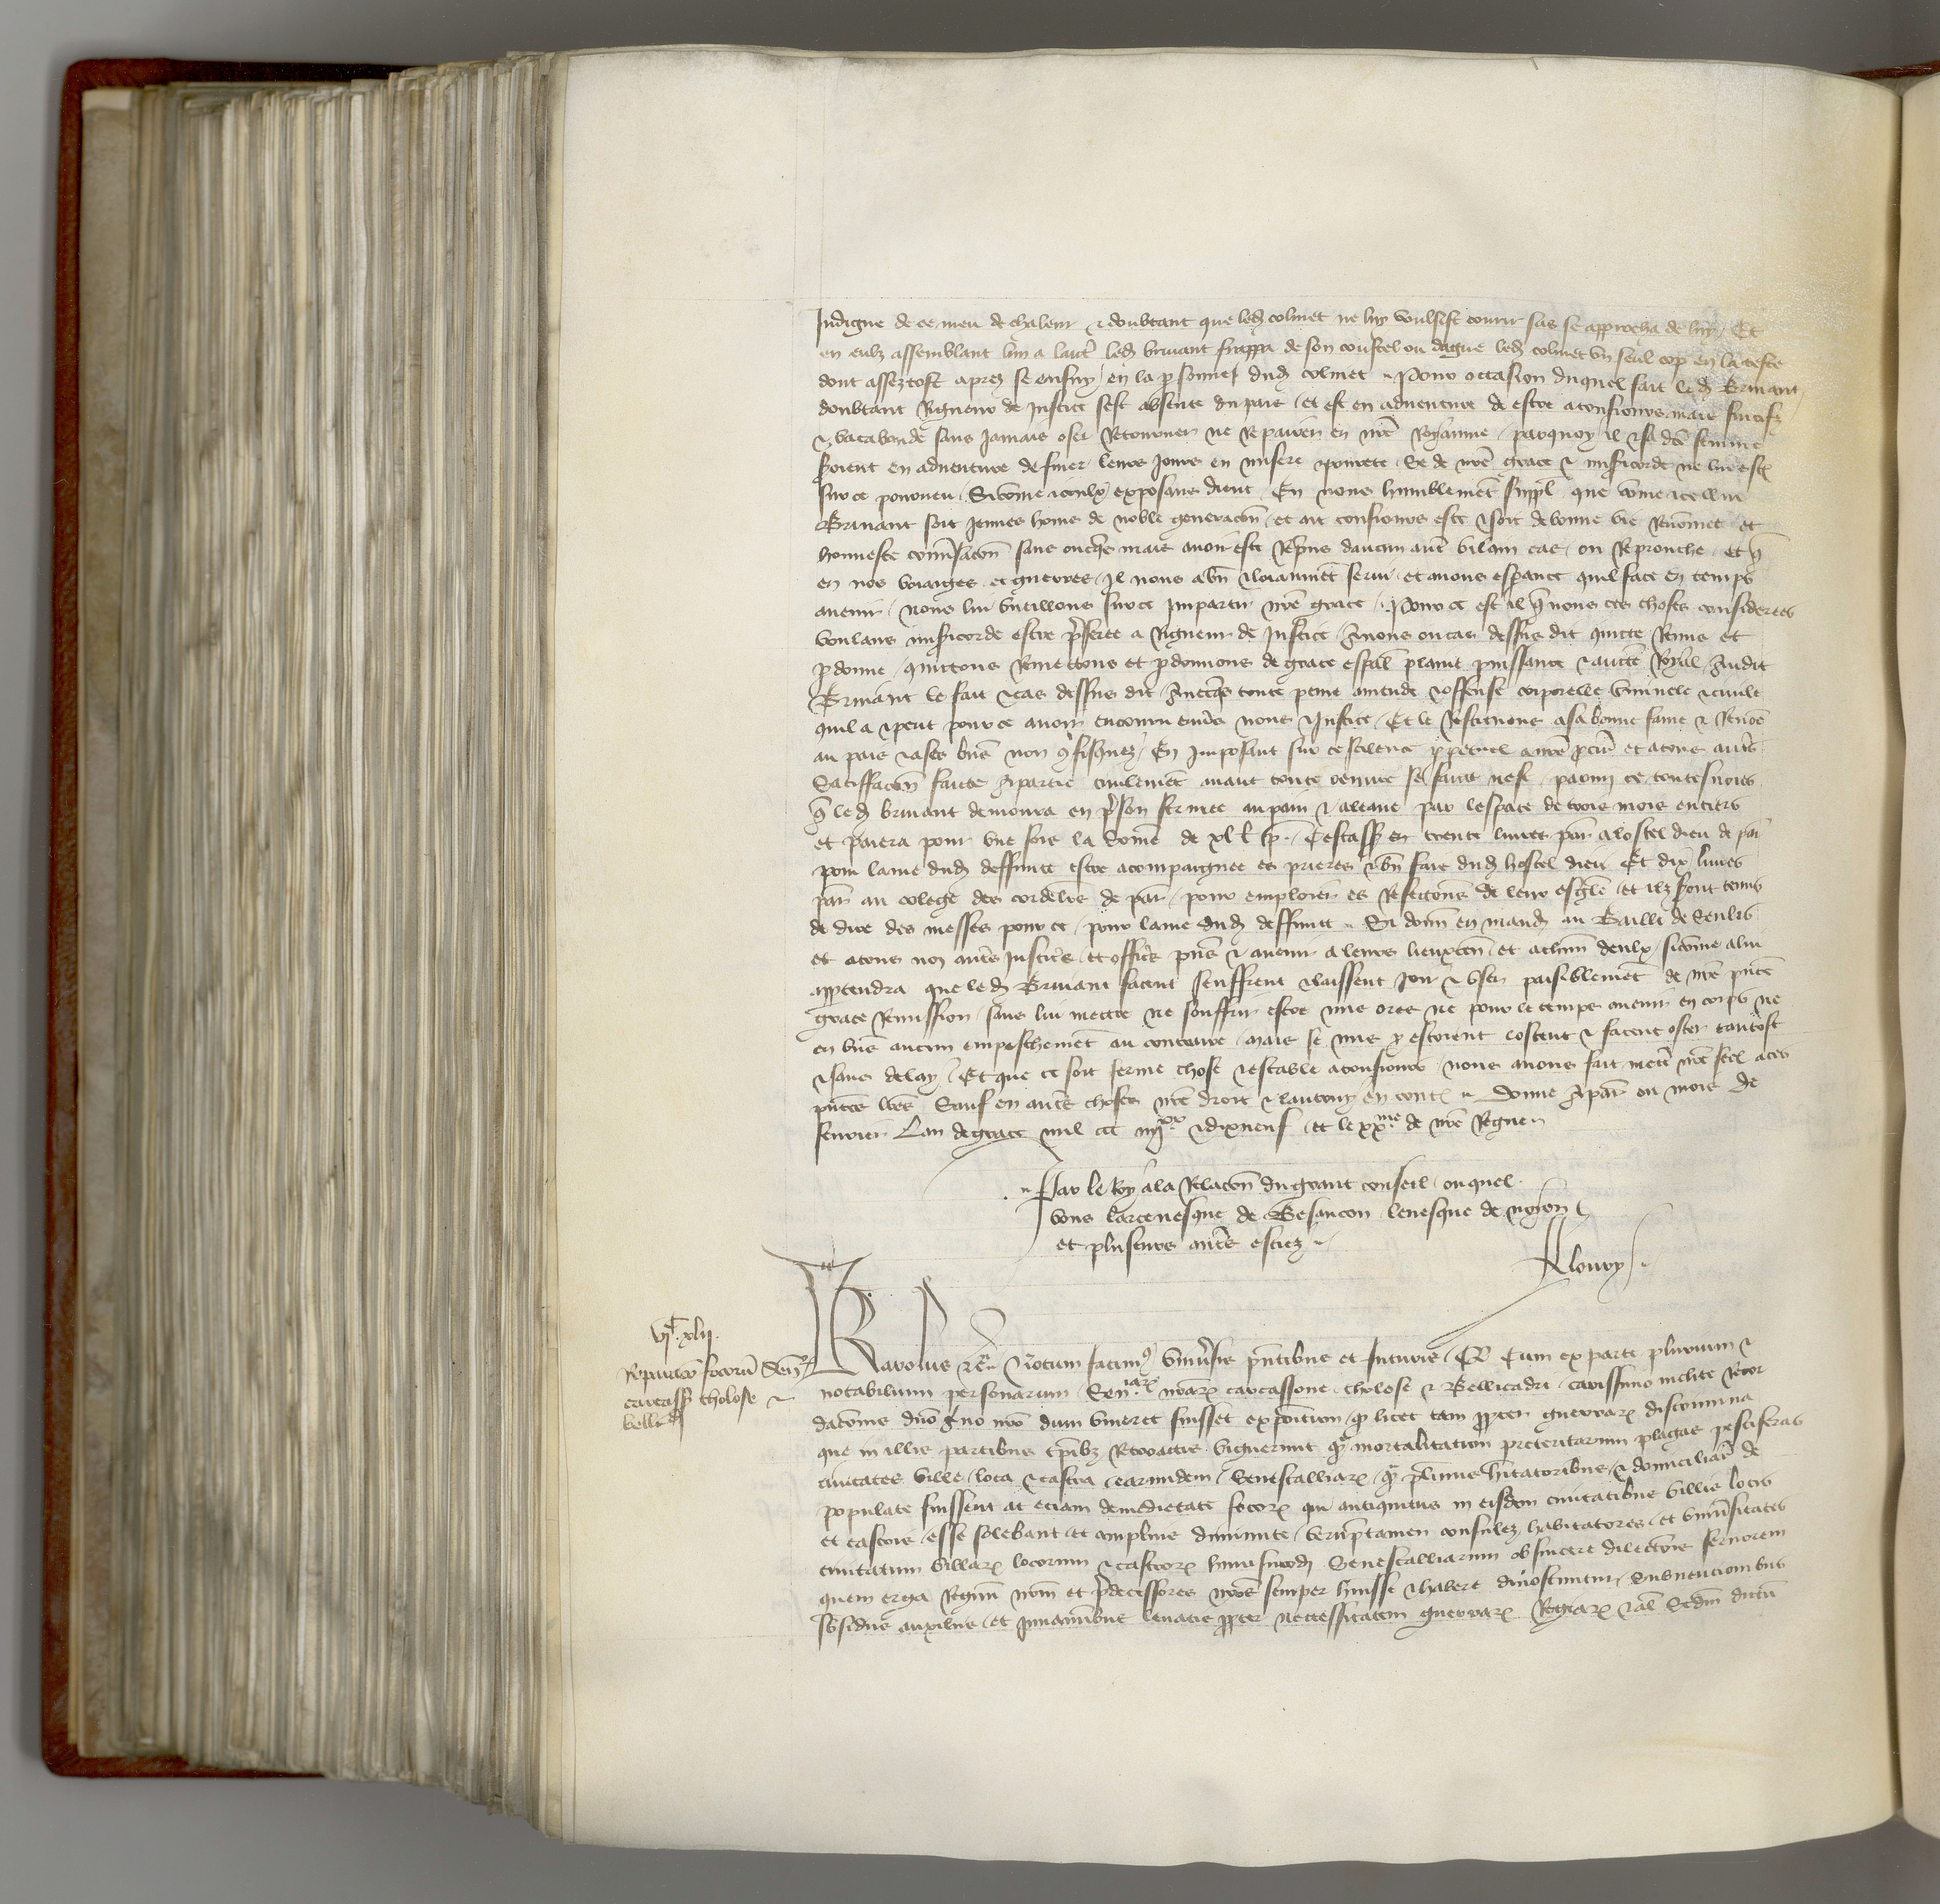 Indigne de ce meu de chaleur & doubtant que led colinet ne luy voulsist courir sus se approcha de luy Et
en eulz assemblant lun a lautre led bruiant frappa de son coustel ou dague led colinet un seul cop en la teste
dont assez tost apres se ensuy en la personne dud colinet Pour occasion duquel fait led Bruiant
doubtant Rigueur de Justice sest absente du pais et est en adventure de estre a tousiours mais fuitifz
& vacabonde sans jamais oser Retourner ne Repairier en nre Royaume parquoy il & sa dce femme
seroient en adventure de finer leurs jours en misere & povrete Se de nre grace & misericorde ne leur est
sur ce pourveu Sicome iceulx exposans dient En nous humblement suppl que come icellui
Bruiant soit jeunes homs de noble generacon et ait tousiours este & soit de bonne vie Renomee et
honneste conversacon sans oncques mais avoir este Repris daucun autre vilain cas ou Reprouche et q
en nos voiaiges et guerres Il nous a bn & loiaument servi et avons esperance quil face en temps
avenir nous lui vueillons sur ce impartir nre grace Pour ce est il q nous ces choses considerees
voulans misericorde estre preferee a Rigueur de Justice Avons ou cas dessus dit quicte Remis et
pardonne quictons Remectons et pardonnons de grace especial plaine puissance & aucte Royal Audit
Bruiant le fait & cas dessus dit Avecques toute peine amende & offense corporelle criminele & civile
quil a & peut pour ce avoir encouru envers nous & Justice Et le Restituons a sa bonne fame & Renom
au pais & a ses biens non confisquez En imposant sur ce silence perpetuel a nre procur et a tous autres
Satisfaccon faicte a partie civilement avant toute oeuvre se faicte nest parmy ce toutesvoies
q led bruiant demourra en prison fermee au pain & a leaue par lespace de trois mois entiers
et paiera pour une fois la some de xl l p Cestassr en trente livres par a lostel dieu de par
pour lame dud deffunct estre acompaignee es prieres & bn fais dud hostel dieu Et dix livres
par au colege des cordeliers de par pour emploier es Refeccons de leur eglise et ilz sont tenus
de dire des messes pour ce pour lame dud deffunct Si donn en mand au Bailli de Senlis
et a tous noz autres Justiciers et officiers pns & avenir a leurs lieuxten et a chun deulx sicome a lui
appartendra que led Bruiant facent seuffrent & laissent Joir & user paisiblement de nre pnte
grace Remission sans lui mectre ne souffrir estre mis ores ne pour le temps avenir en corps ne
en biens aucun empeschement au contraire mais se mis y estoient lostent & facent oster tantost
& sans delay Et que ce soit ferme chose & estable a tousiours nous avons fait mectre nre seel a ces
pntes lres Sauf en autres choses nre droit & lautruy en toutes Donne a par ou mois de
fevrier Lan de grace mil ccc iiijxx & dixneuf et le xxme de nre Regne
Par le Roy a la Relacon du grant conseil ouquel
vous larcevesque de Besancon levesque de noion
et pluseurs autres estiez
Floury
vjc xlij
Reparacio focorum Senie
carcass tholose
bellicad
Karolus &c Notum facimus universis pntibus et futuris Q Cum ex parte plurium &
notabilium personarum Seniarum nrarum carcassone tholose & Bellicadri carissimo inclite Recor
dacionis dno gno nro dum viveret fuisset expositum q licet tam propter guerrarum discrimina
que in illis partibus tpibz Retroactis viguerunt qm mortalitatum preteritarum plagas pestiferas
civitates ville loca & castra earumdem Senescalliarum q plurimis habitatoribus & domiciliariis de
populate fuissent ac eciam de medietate focorum qui antiquitus in eisdem civitatibus villis locis
et castris esse solebant et amplius diminute veruptamen consules habitatores et universitates
civitatum villarum locorum & castrorum huiusmod Senescalliarum ob sincere dileccionis fervorem
quem erga Regnum nrm et predecessores nros semper habuisse & habere dinoscuntur subvencionibus
subsidiis auxiliis et juvaminibus levatis propter necessitatem guerrarum Regiarum & al Secdm dictum